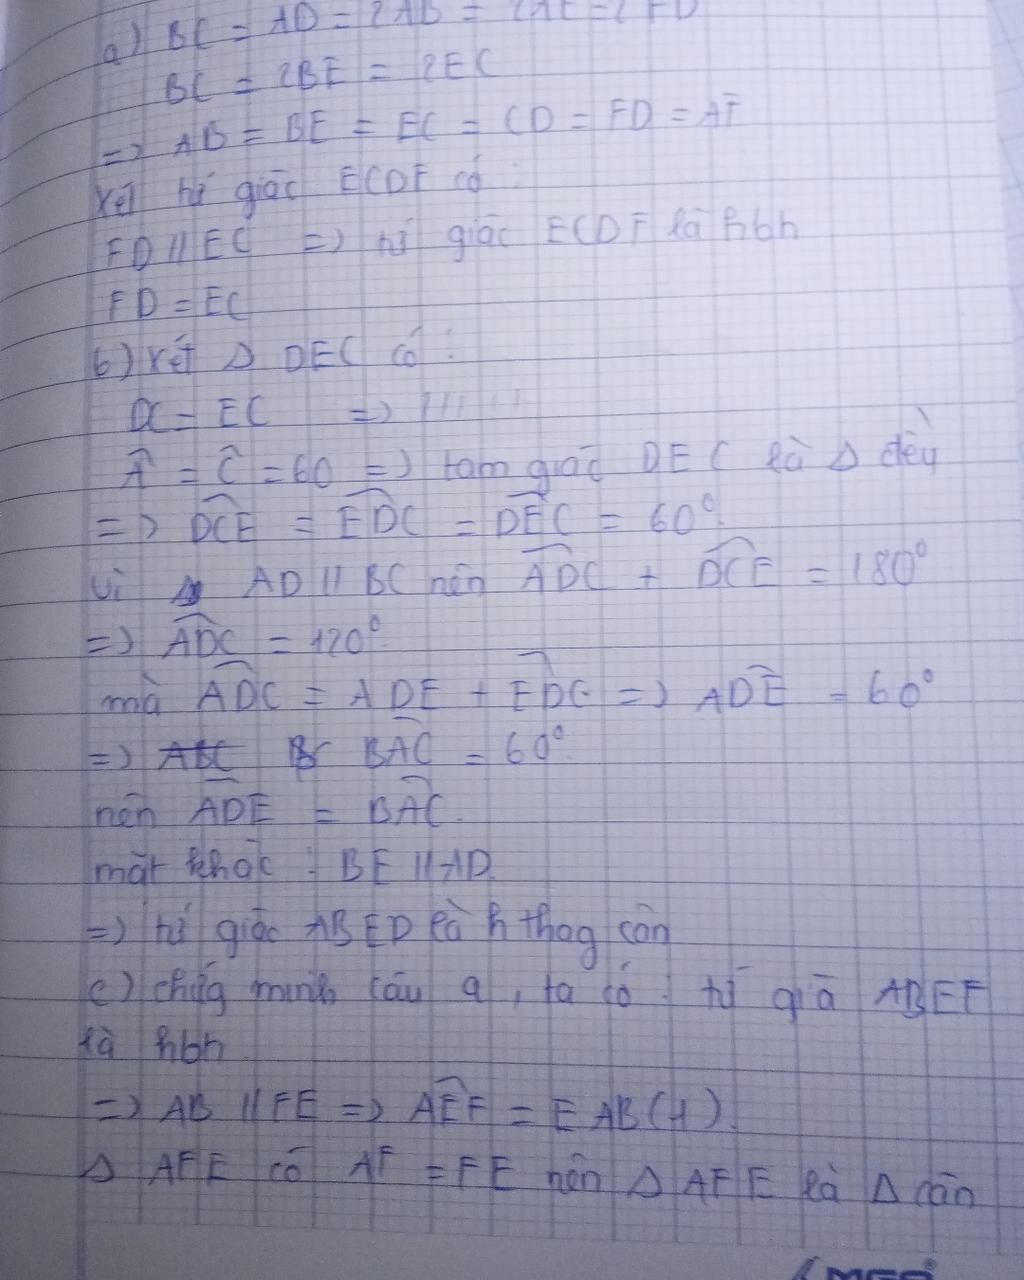 a) BC = AD = 2AB = 2AF = 2FD
BC = 2BE = 2EC
=> AB = BE = EC = CD = FD = AF
Xét tứ giác ECDF có :
FD // EC => tứ giác ECDF là hbh
FD = EC
b) Xét Δ DEC có :
DC = EC =>
Â = Ĉ = 60 => tam giác DEC là Δ đều
=> DCE = EDC = DEC = 60°
Vì AD // BC nên ADC + DCE = 180°
=> ADC = 120°
mà ADC = ADE + EDC => ADE = 60°
=> BAC = 60°
nên ADE = BAC
mặt khác : BE // AD
=> tứ giác ABED là h thag cân
c) chứg minh câu a, ta có : tứ giá ABEF
là hbh
=> AB // FE => AEF = EAB (1)
Δ AFE có AF = FE nên Δ AFE là Δ cân